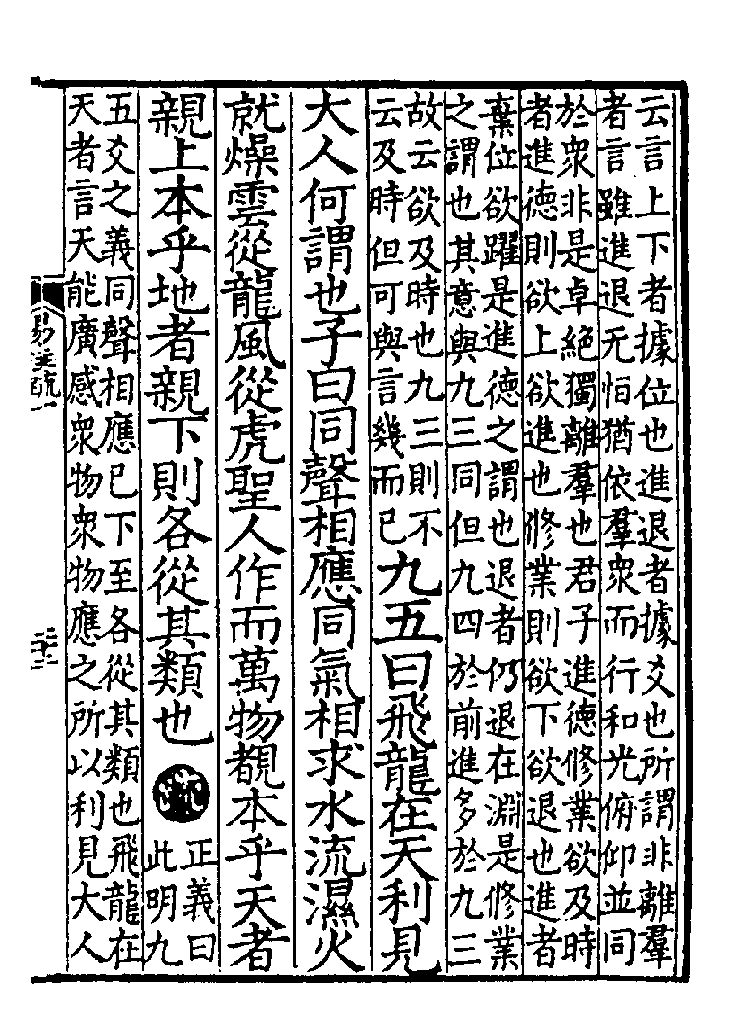 云言上下者據位也進退者據爻也所謂非離羣
者言雖進退无怕猶依羣衆而行和光俯仰並同
於衆非是卓絶獨離羣也君子進德修業欲及時
者進德則欲上欲進也修業則欲下欲退也進者
棄位欲躍是進德之謂也退者仍退在淵是修業
之謂也其意與九三同但九四於前進多於九三
故云欲及時也九三則不
云及時但可與言幾而已
九五曰飛龍在天利見
大人何謂也子曰同聲相應同氣相求水流濕火
就燥雲從龍風從虎聖人作而萬物覩本乎天者
親上本乎地者親下則各從其類也
疏
正義曰
此明九
五爻之義同聲相應已下至各從其類也飛龍在
天者言天能廣感衆物衆物應之所以利見大人
易注疏一
二十二